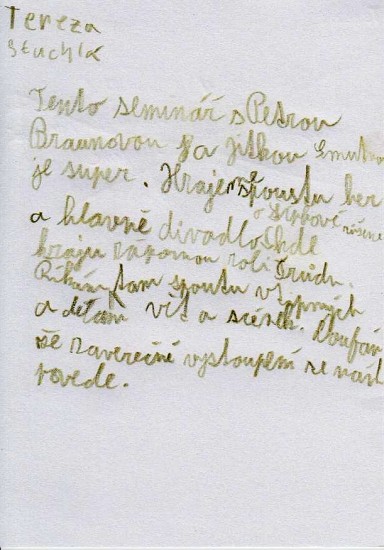 Tereza
Stuchlá
Tento seminář s Petrou
Braunovou a Jitkou Smutnou
je super. Hrajeme spoustu her
a hlavně divadlo o Šípkové růžence
kde
hraju zápornou roli Trudu.
Říkám tam spoustu vtipných
a dětem vět a scének. Doufám
že zaverečné vystoupení se nám
povede.